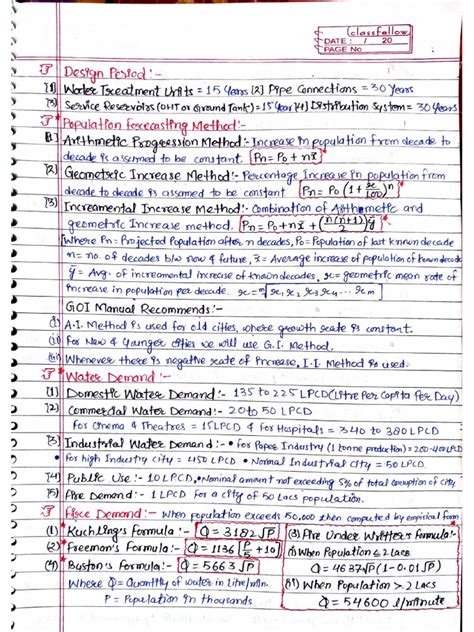 classfellow
DATE: / 20
PAGE No
Design Period :-
(1) Water Treatment Units = 15 Years (2) Pipe Connections = 30 Years
(3) Service Reservoirs (OHT or Ground Tank) = 15 Year (4) Distribution System = 30 Years
* Population forecasting Method :-
(1) Arithmetic Progression Method :- Increase in population from decade to
decade is assumed to be constant. Pn = Po + nx̄
(2) Geometric Increase Method :- Percentage Increase in population from
decade to decade is assumed to be constant Pn = Po (1 + r/100)^n
(3) Incremental Increase Method :- Combination of Arithmetic and
geometric Increase method. Pn = Po + nx̄ + (n(n+1)/2) ȳ
Where Pn = Projected Population after n decades, Po = Population of last known decade
n = no. of decades b/w now & future, x̄ = Average increase of population of known decade
ȳ = Avg. of incremental increase of known decades, r = geometric mean rate of
Increase in population per decade. r = m√r1 r2 r3 r4 ... rm
GOI Manual Recommends :-
(i) A.I. Method is used for old cities, where growth rate is constant.
(ii) For New & Younger cities we will use G.I. Method.
(iii) Whenever there is negative rate of Increase, I.I. Method is used.
* Water Demand :-
(1) Domestic Water Demand :- 135 to 225 LPCD (Litre Per Capita Per Day)
(2) Commercial Water Demand :- 20 to 50 LPCD
For Cinema & Theatres = 15 LPCD & for Hospitals = 340 to 380 LPCD
(3) Industrial Water Demand :- • For Paper Industry (1 tonne production) = 200-400 LPCD
• For high Industry city = 450 LPCD • Normal Industrial city = 50 LPCD.
(4) Public Use :- 10 LPCD, • Nominal amount not exceeding 5% of total consumption of city
(5) Fire Demand :- 1 LPCD for a city of 50 lacs population.
* Fire Demand :- When population exceeds 50,000 then computed by empirical form.
(1) * Kuchling's Formula :- Q = 3182√P
(2) * Freeman's Formula :- Q = 1136 [P/5 + 10]
(4) * Buston's Formula :- Q = 5663√P
Where Q = Quantity of water in litre/min.
P = Population in thousands.
(3) Fire Under Writters Formula :-
(i) When Population ≤ 2 Lacs
Q = 4637√P (1 - 0.01√P)
(ii) When Population > 2 Lacs
Q = 54600 l/minute